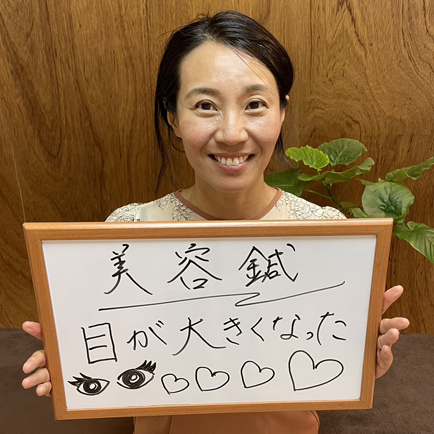 美容鍼
目が大きくなった